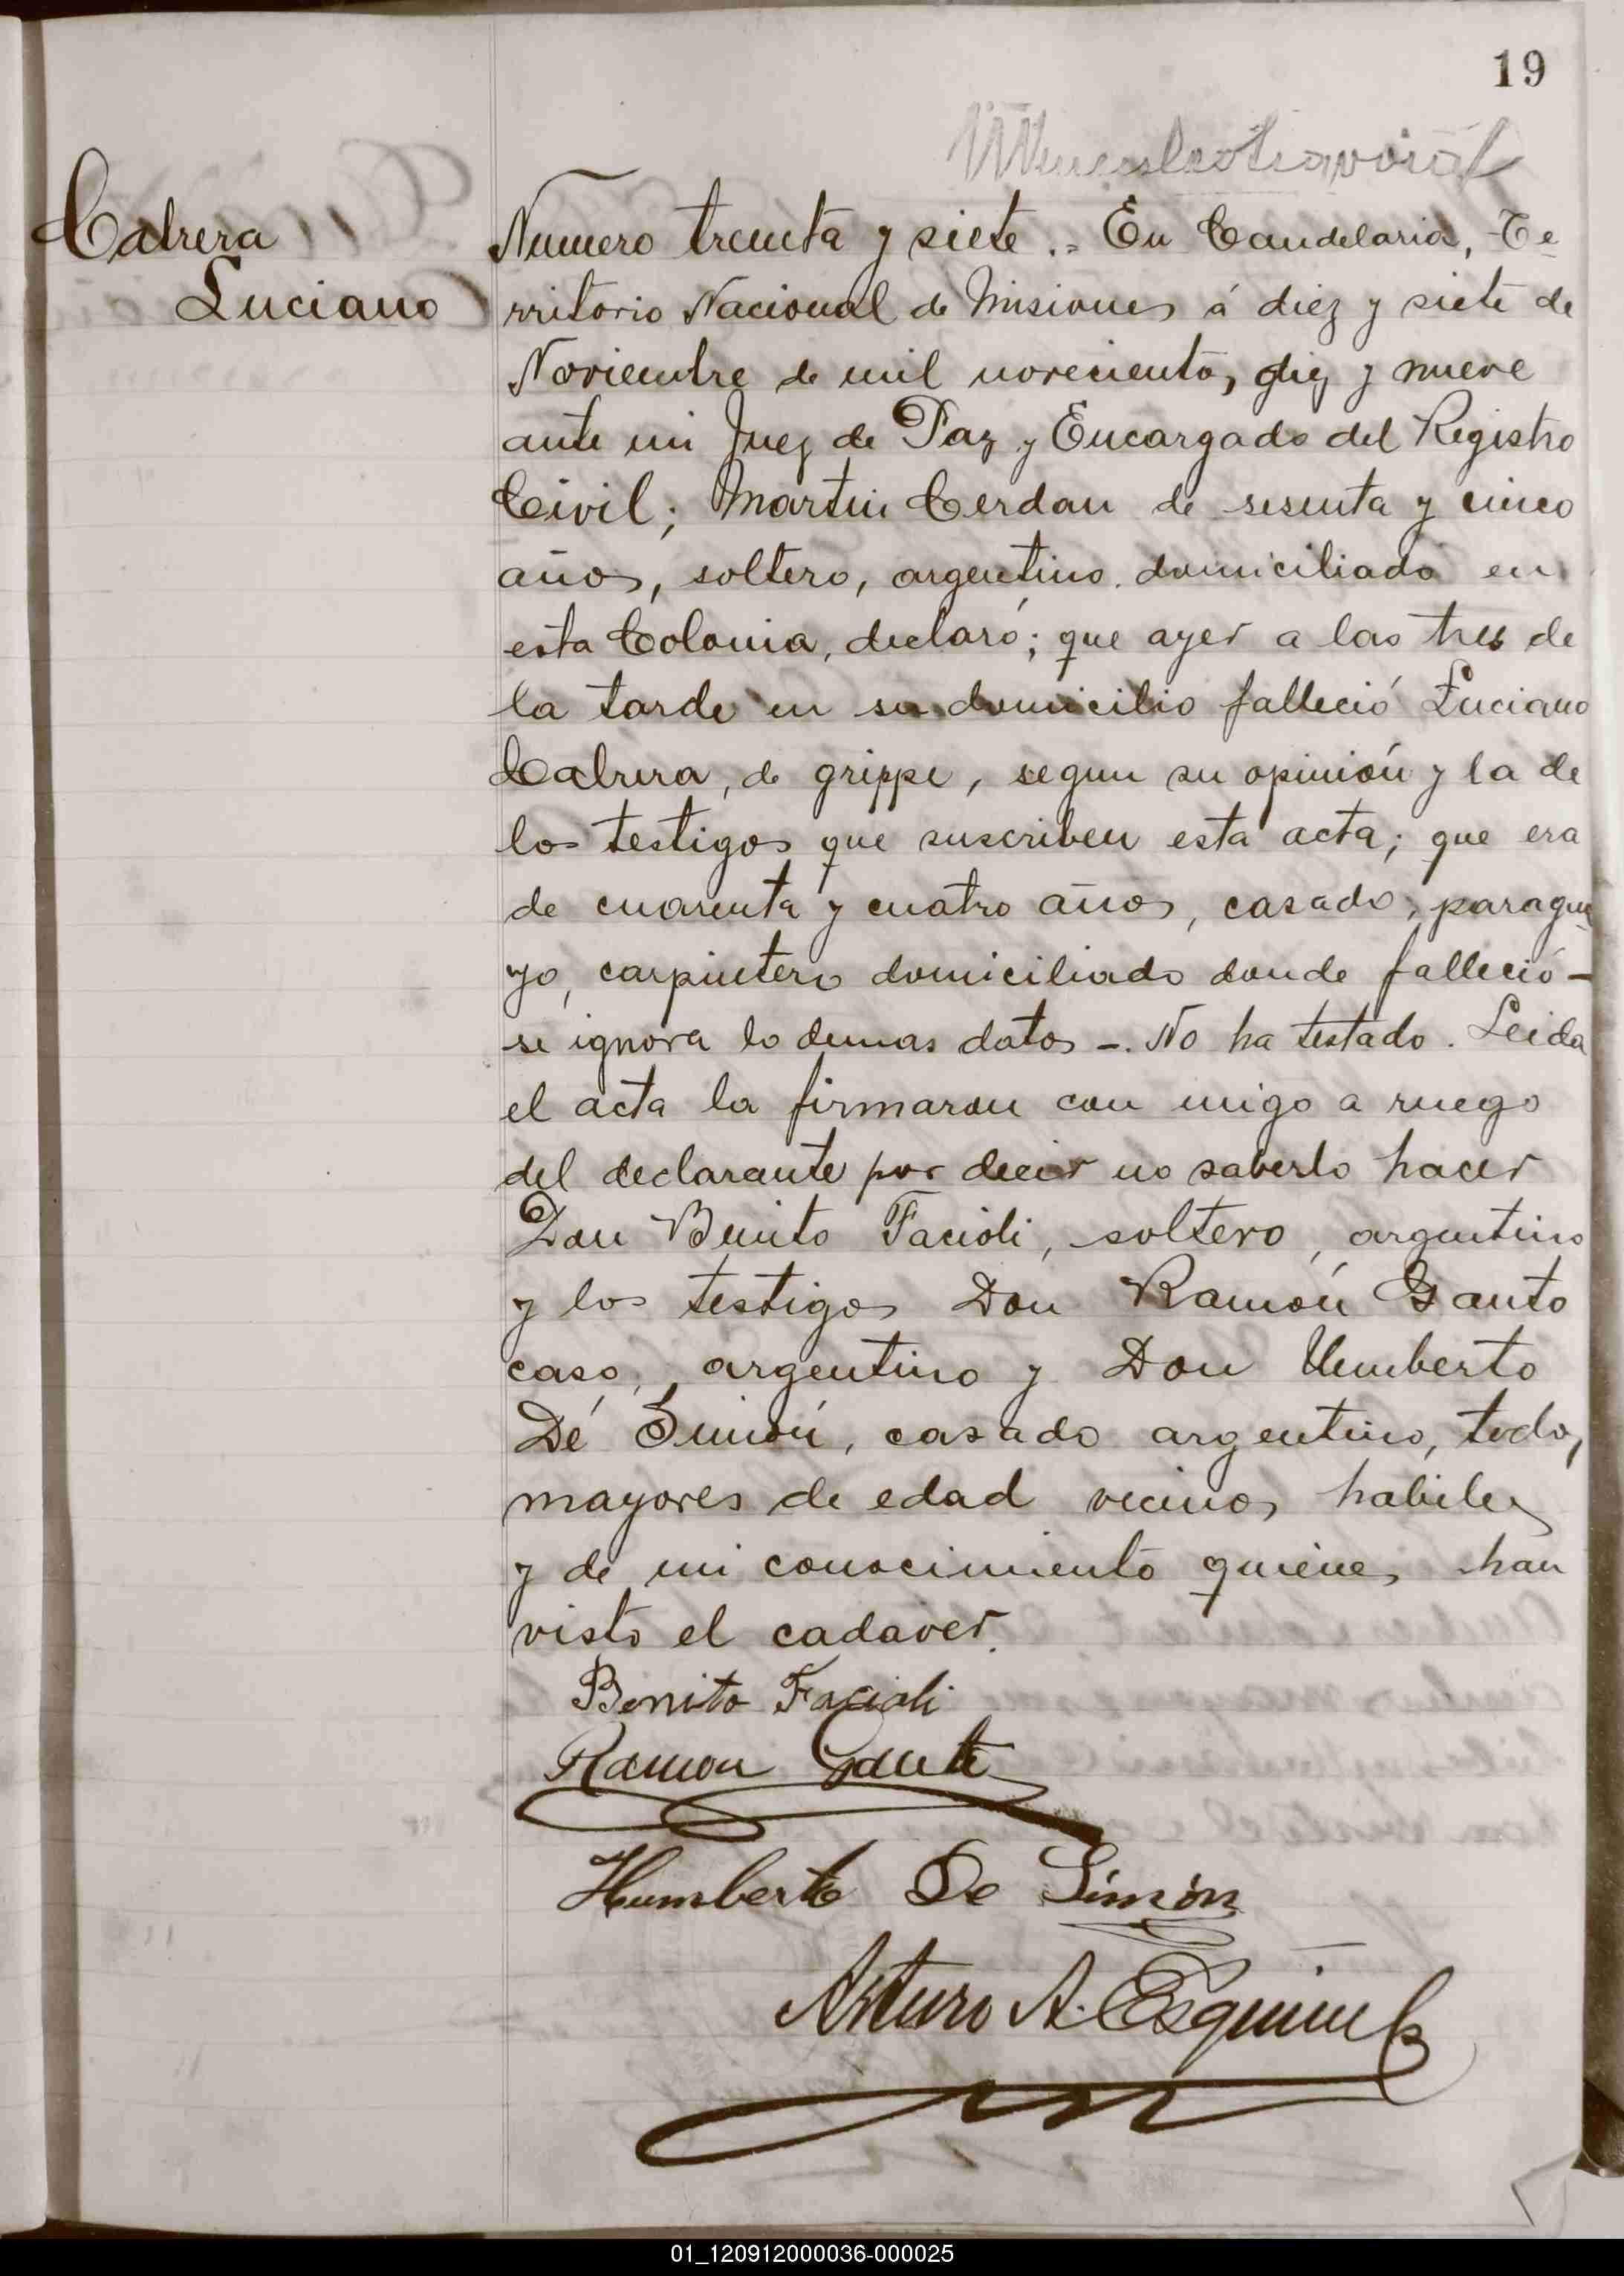 19
Cabrera
Luciano
Numero treinta y siete.= En Candelaria, Te
rritorio Nacional de Misiones á diez y siete de
Noviembre de mil novecientos diez y nueve
ante mi Juez de Paz y Encargado del Registro
Civil; Martin Cerdan de sesenta y cinco
años, soltero, argentino. domiciliado en
esta Colonia, declaró; que ayer a las tres de
la tarde en su domicilio falleció Luciano
Cabrera, de grippe, segun su opinión y la de
los testigos que suscriben esta acta; que era
de cuarenta y cuatro años, casado, paragua
yo, carpintero domiciliado donde falleció -
se ignora lo demas datos -. No ha testado. Leida
el acta la firmaron con migo a ruego
del declarante por decir no saberlo hacer
Don Benito Facioli, soltero, argentino
y los testigos Don Ramón Gauto
caso, argentino y Don Umberto
Dé Simón, casado argentino, todos
mayores de edad vecinos habiles
y de mi conocimiento quienes han
visto el cadaver.
Benito Facioli
Ramon Gaute
Humberto De Simón
Arturo A. Esquivel
01_120912000036-000025